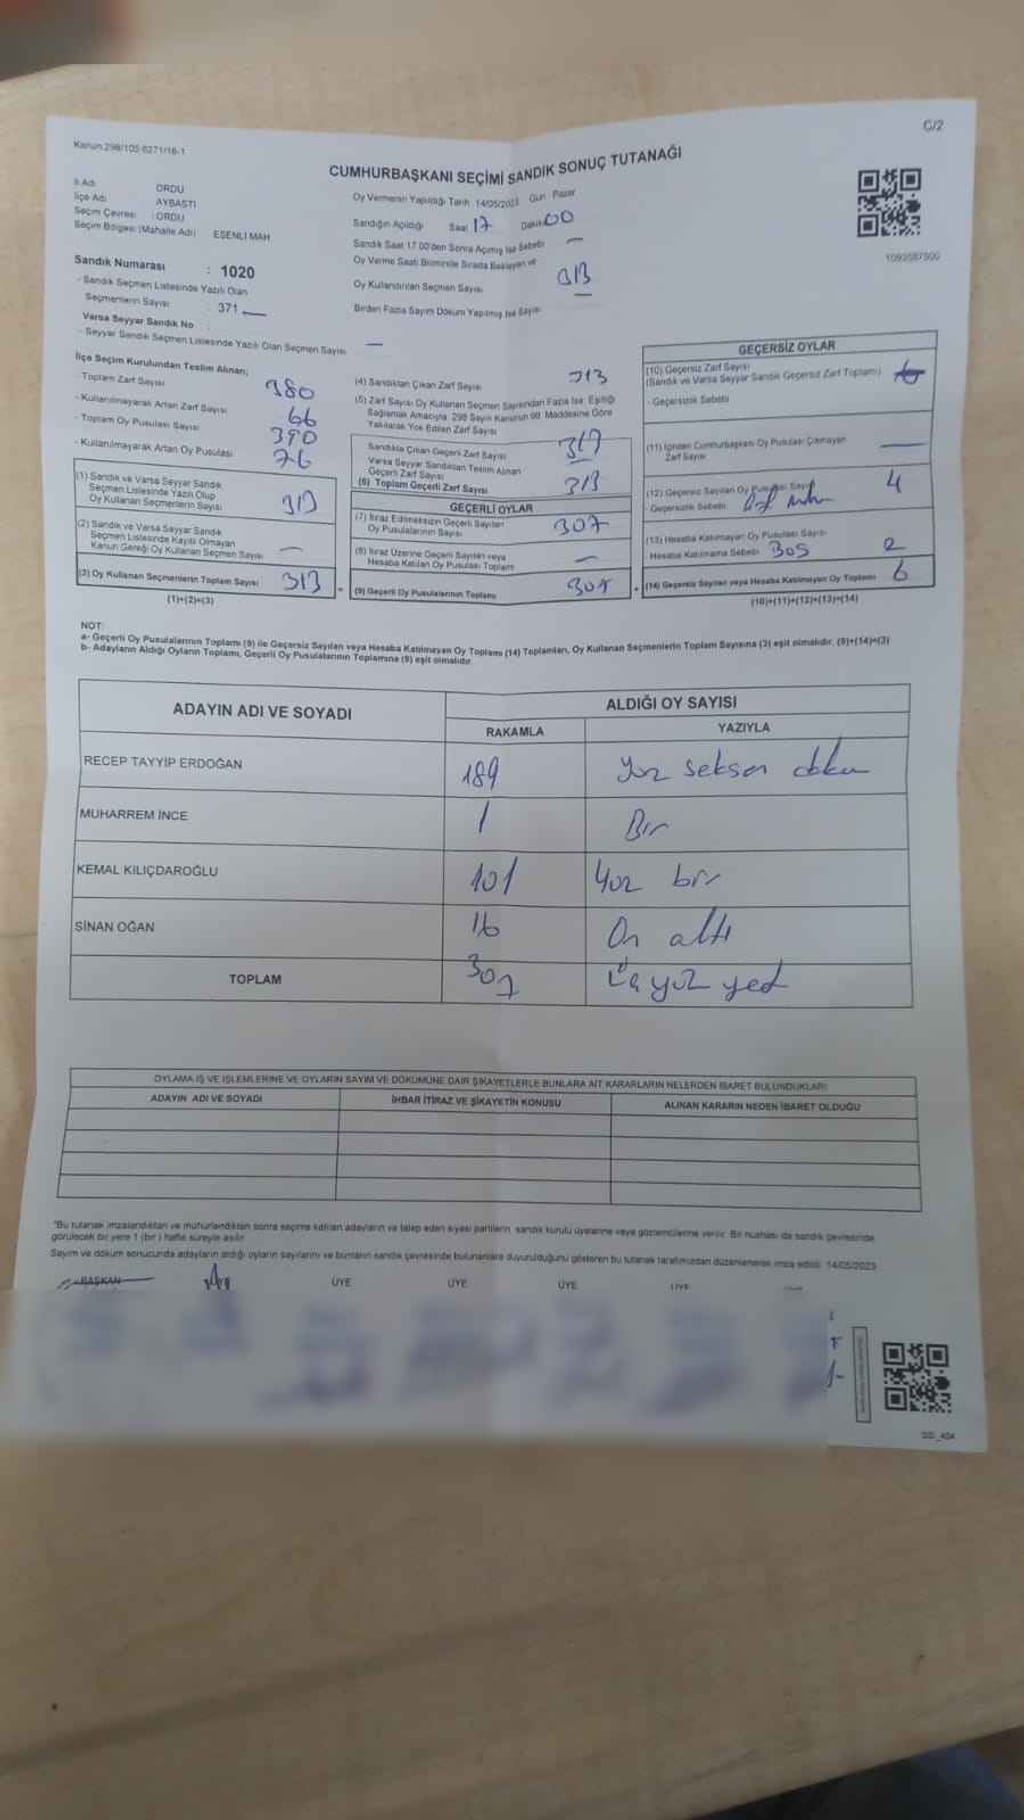 C/2
Kanun 298/105 6271/16-1
CUMHURBAŞKANI SEÇİMİ SANDIK SONUÇ TUTANAĞI
İl Adı ORDU
İlçe Adı AYBASTI
Seçim Çevresi : ORDU
Seçim Bölgesi (Mahalle Adı) ESENLİ MAH
Oy Vermenin Yapıldığı Tarih 14/05/2023 Gün Pazar
Sandığın Açıldığı Saat 17 Dakika 00
Sandık Saat 17.00'den Sonra Açılmış İse Sebebi —
Oy Verme Saati Bitiminde Sırada Bekleyen ve
Oy Kullandırılan Seçmen Sayısı 313
Birden Fazla Sayım Döküm Yapılmış İse Sayısı —
Sandık Numarası : 1020
- Sandık Seçmen Listesinde Yazılı Olan
Seçmenlerin Sayısı 371
Varsa Seyyar Sandık No
- Seyyar Sandık Seçmen Listesinde Yazılı Olan Seçmen Sayısı —
İlçe Seçim Kurulundan Teslim Alınan;
- Toplam Zarf Sayısı 380
- Kullanılmayarak Artan Zarf Sayısı 66
- Toplam Oy Pusulası Sayısı 390
- Kullanılmayarak Artan Oy Pusulası 76
(1) Sandık ve Varsa Seyyar Sandık
Seçmen Listesinde Yazılı Olup
Oy Kullanan Seçmenlerin Sayısı 313
(2) Sandık ve Varsa Seyyar Sandık
Seçmen Listesinde Kaydı Olmayan
Kanun Gereği Oy Kullanan Seçmen Sayısı —
(3) Oy Kullanan Seçmenlerin Toplam Sayısı 313
(1)+(2)=(3)
(4) Sandıktan Çıkan Zarf Sayısı 313
(5) Zarf Sayısı Oy Kullanan Seçmen Sayısından Fazla İse; Eşitliği
Sağlamak Amacıyla 298 Sayılı Kanunun 98. Maddesine Göre
Yakılarak Yok Edilen Zarf Sayısı
Sandıkta Çıkan Geçerli Zarf Sayısı
Varsa Seyyar Sandıktan Teslim Alınan
Geçerli Zarf Sayısı
(6) Toplam Geçerli Zarf Sayısı 313
GEÇERLİ OYLAR
(7) İtiraz Edilmeksizin Geçerli Sayılan
Oy Pusulalarının Sayısı 307
(8) İtiraz Üzerine Geçerli Sayılan veya
Hesaba Katılan Oy Pusulası Toplamı —
(9) Geçerli Oy Pusulalarının Toplamı 307
GEÇERSİZ OYLAR
(10) Geçersiz Zarf Sayısı
(Sandık ve Varsa Seyyar Sandık Geçersiz Zarf Toplamı)
- Geçersizlik Sebebi
(11) İçinden Cumhurbaşkanı Oy Pusulası Çıkmayan
Zarf Sayısı —
(12) Geçersiz Sayılan Oy Pusulası Sayısı 4
Geçersizlik Sebebi
(13) Hesaba Katılmayan Oy Pusulası Sayısı 2
Hesaba Katılmama Sebebi 305
(14) Geçersiz Sayılan veya Hesaba Katılmayan Oy Toplamı 6
(10)+(11)+(12)+(13)=(14)
1093587500
NOT:
a- Geçerli Oy Pusulalarının Toplamı (9) ile Geçersiz Sayılan veya Hesaba Katılmayan Oy Toplamı (14) Toplamları, Oy Kullanan Seçmenlerin Toplam Sayısına (3) eşit olmalıdır. (9)+(14)=(3)
b- Adayların Aldığı Oyların Toplamı, Geçerli Oy Pusulalarının Toplamına (9) eşit olmalıdır.
ADAYIN ADI VE SOYADI ALDIĞI OY SAYISI
RAKAMLA YAZIYLA
RECEP TAYYİP ERDOĞAN 189 Yüz seksen dokuz
MUHARREM İNCE 1 Bir
KEMAL KILIÇDAROĞLU 101 Yüz bir
SİNAN OĞAN 16 On altı
TOPLAM 307 Üç yüz yedi
OYLAMA İŞ VE İŞLEMLERİNE VE OYLARIN SAYIM VE DÖKÜMÜNE DAİR ŞİKAYETLERLE BUNLARA AİT KARARLARIN NELERDEN İBARET BULUNDUKLARI
ADAYIN ADI VE SOYADI İHBAR İTİRAZ VE ŞİKAYETİN KONUSU ALINAN KARARIN NEDEN İBARET OLDUĞU
"Bu tutanak imzalandıktan ve mühürlendikten sonra seçime katılan adayların ve talep eden siyasi partilerin sandık kurulu üyelerine veya gözlemcilerine verilir. Bir nüshası da sandık çevresinde
görülecek bir yere 1 (bir) hafta süreyle asılır.
Sayım ve döküm sonucunda adayların aldığı oyların sayılarını ve bunların sandık çevresinde bulunanlara duyurulduğunu gösteren bu tutanak tarafımızdan düzenlenerek imza edildi. 14/05/2023
BAŞKAN ÜYE ÜYE ÜYE ÜYE